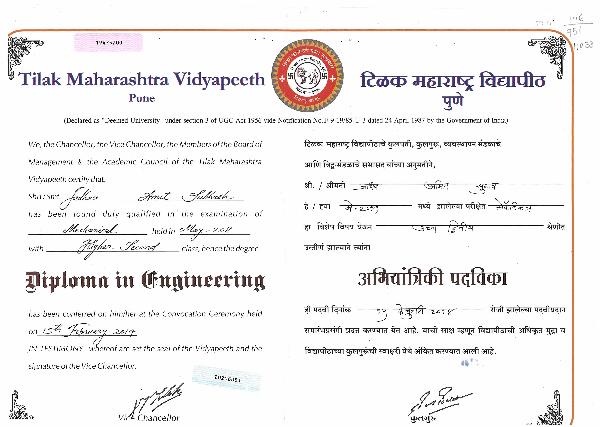 Tilak Maharashtra Vidyapeeth
Pune
टिळक महाराष्ट्र विद्यापीठ
पुणे
(Declared as "Deemed University" under section 3 of UGC Act 1956 vide Notification No. F 9-19/85-U-3 dated 24 April 1987 by the Government of India)
We, the Chancellor, the Vice Chancellor, the Members of the Board of
Management & the Academic Council of the Tilak Maharashtra
Vidyapeeth certify that,
Shri / Smt. Amit Subhash
has been found duly qualified in the examination of
Mechanical held in May-2011
with Higher Second class, hence the degree
Diploma in Engineering
has been conferred on him/her at the Convocation Ceremony held
on 15th February 2014
IN TESTIMONY whereof are set the seal of the Vidyapeeth and the
signature of the Vice Chancellor.
Vice Chancellor
टिळक महाराष्ट्र विद्यापीठाचे कुलपती, कुलगुरू, व्यवस्थापन मंडळाचे
आणि विद्वत्मंडळाचे सभासद यांच्या अनुमतीने,
श्री. / श्रीमती अमित सुभाष
हे / ह्या मे-२०११ मध्ये झालेल्या परीक्षेत मेकॅनिकल
हा विशेष विषय घेऊन उच्च द्वितीय श्रेणीत
उत्तीर्ण झाल्याने त्यांना
अभियांत्रिकी पदविका
ही पदवी दिनांक १५ फेब्रुवारी २०१४ रोजी झालेल्या पदवीप्रदान
समारंभप्रसंगी प्रदान करण्यात येत आहे. याची साक्ष म्हणून विद्यापीठाची अधिकृत मुद्रा व
विद्यापीठाच्या कुलगुरूंची स्वाक्षरी येथे अंकित करण्यात आली आहे.
कुलगुरू